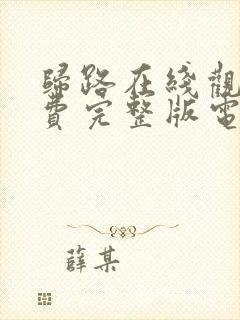 歸路在綫觀
費完整版電
薛某